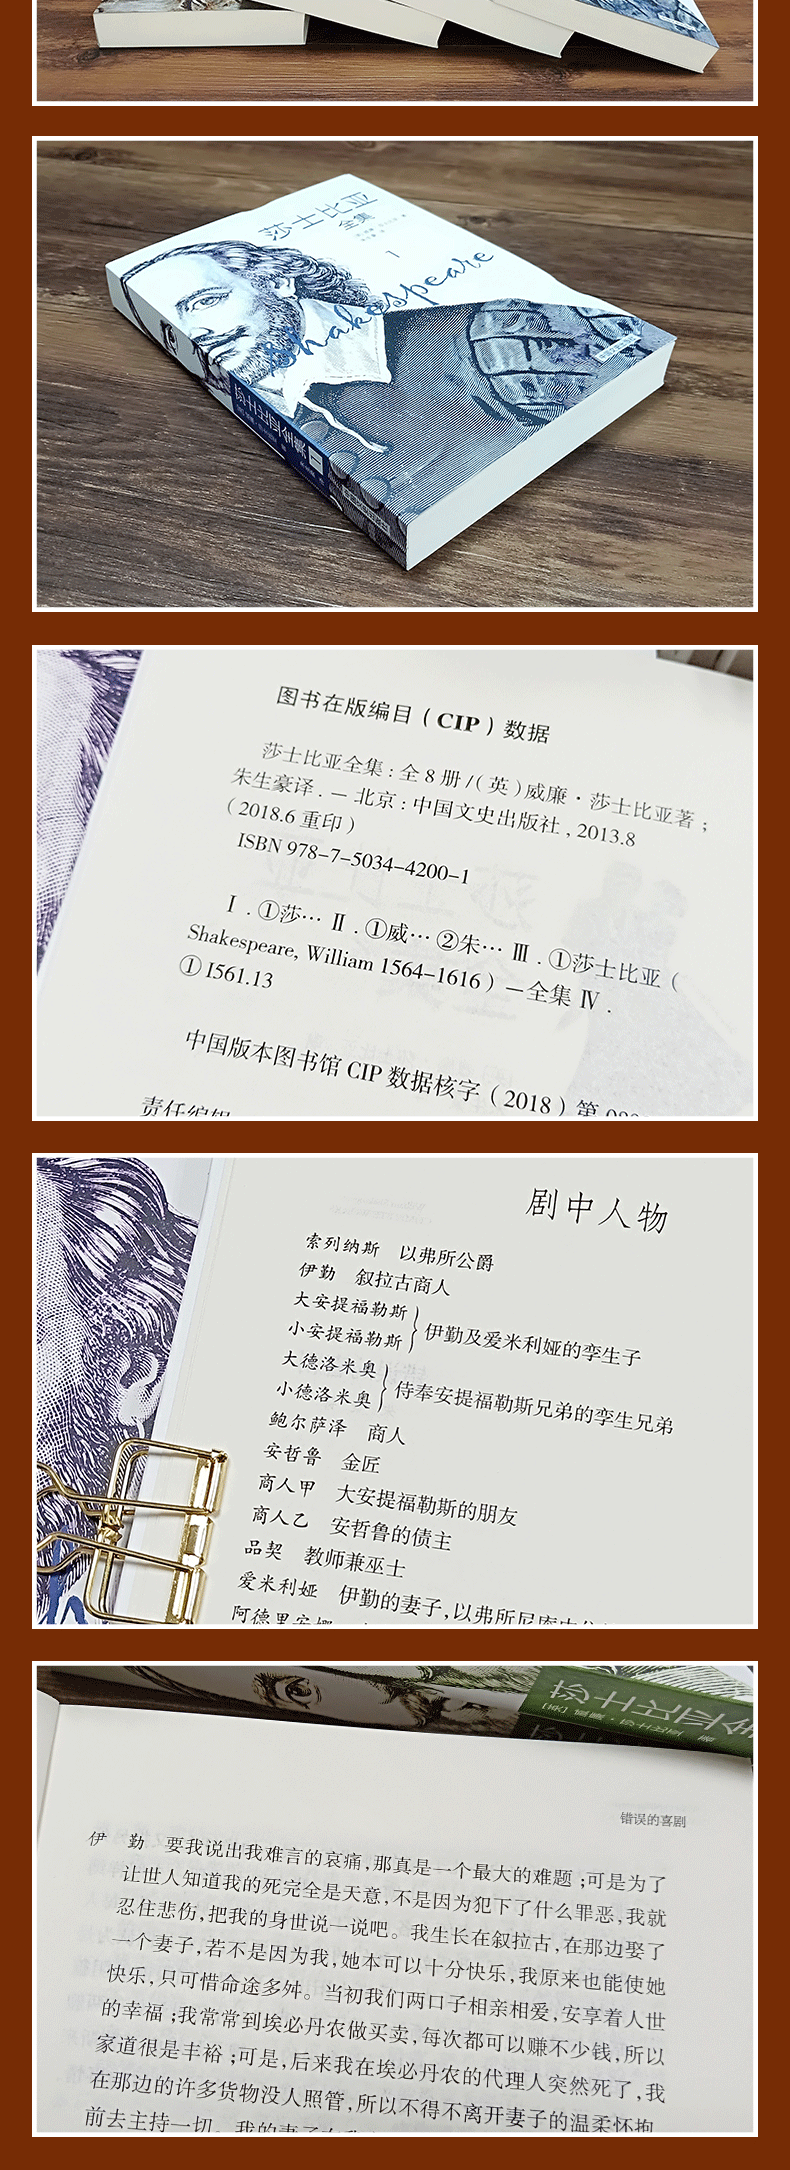 莎士比亚
全集
1
Shakespeare
莎士比亚全集
图书在版编目（CIP）数据
莎士比亚全集：全 8 册 /（英）威廉·莎士比亚著；
朱生豪译．— 北京：中国文史出版社，2013.8
（2018.6 重印）
ISBN 978-7-5034-4200-1
Ⅰ．①莎… Ⅱ．①威… ②朱… Ⅲ．①莎士比亚（
Shakespeare, William 1564-1616）—全集 Ⅳ．
① I561.13
中国版本图书馆 CIP 数据核字（2018）第
责任编辑
剧中人物
索列纳斯 以弗所公爵
伊勤 叙拉古商人
大安提福勒斯
小安提福勒斯 } 伊勤及爱米利娅的孪生子
大德洛米奥
小德洛米奥 } 侍奉安提福勒斯兄弟的孪生兄弟
鲍尔萨泽 商人
安哲鲁 金匠
商人甲 大安提福勒斯的朋友
商人乙 安哲鲁的债主
品契 教师兼巫士
爱米利娅 伊勤的妻子，以弗所尼庵
阿德里安娜
莎士比亚全
[英] 威廉·莎士比亚 著
错误的喜剧
伊 勤 要我说出我难言的哀痛，那真是一个最大的难题；可是为了
让世人知道我的死完全是天意，不是因为犯下了什么罪恶，我就
忍住悲伤，把我的身世说一说吧。我生长在叙拉古，在那边娶了
一个妻子，若不是因为我，她本可以十分快乐，我原来也能使她
快乐，只可惜命途多舛。当初我们两口子相亲相爱，安享着人世
的幸福；我常常到埃必丹农做买卖，每次都可以赚不少钱，所以
家道很是丰裕；可是，后来我在埃必丹农的代理人突然死了，我
在那边的许多货物没人照管，所以不得不离开妻子的温柔怀抱，
前去主持一切。我的妻子在